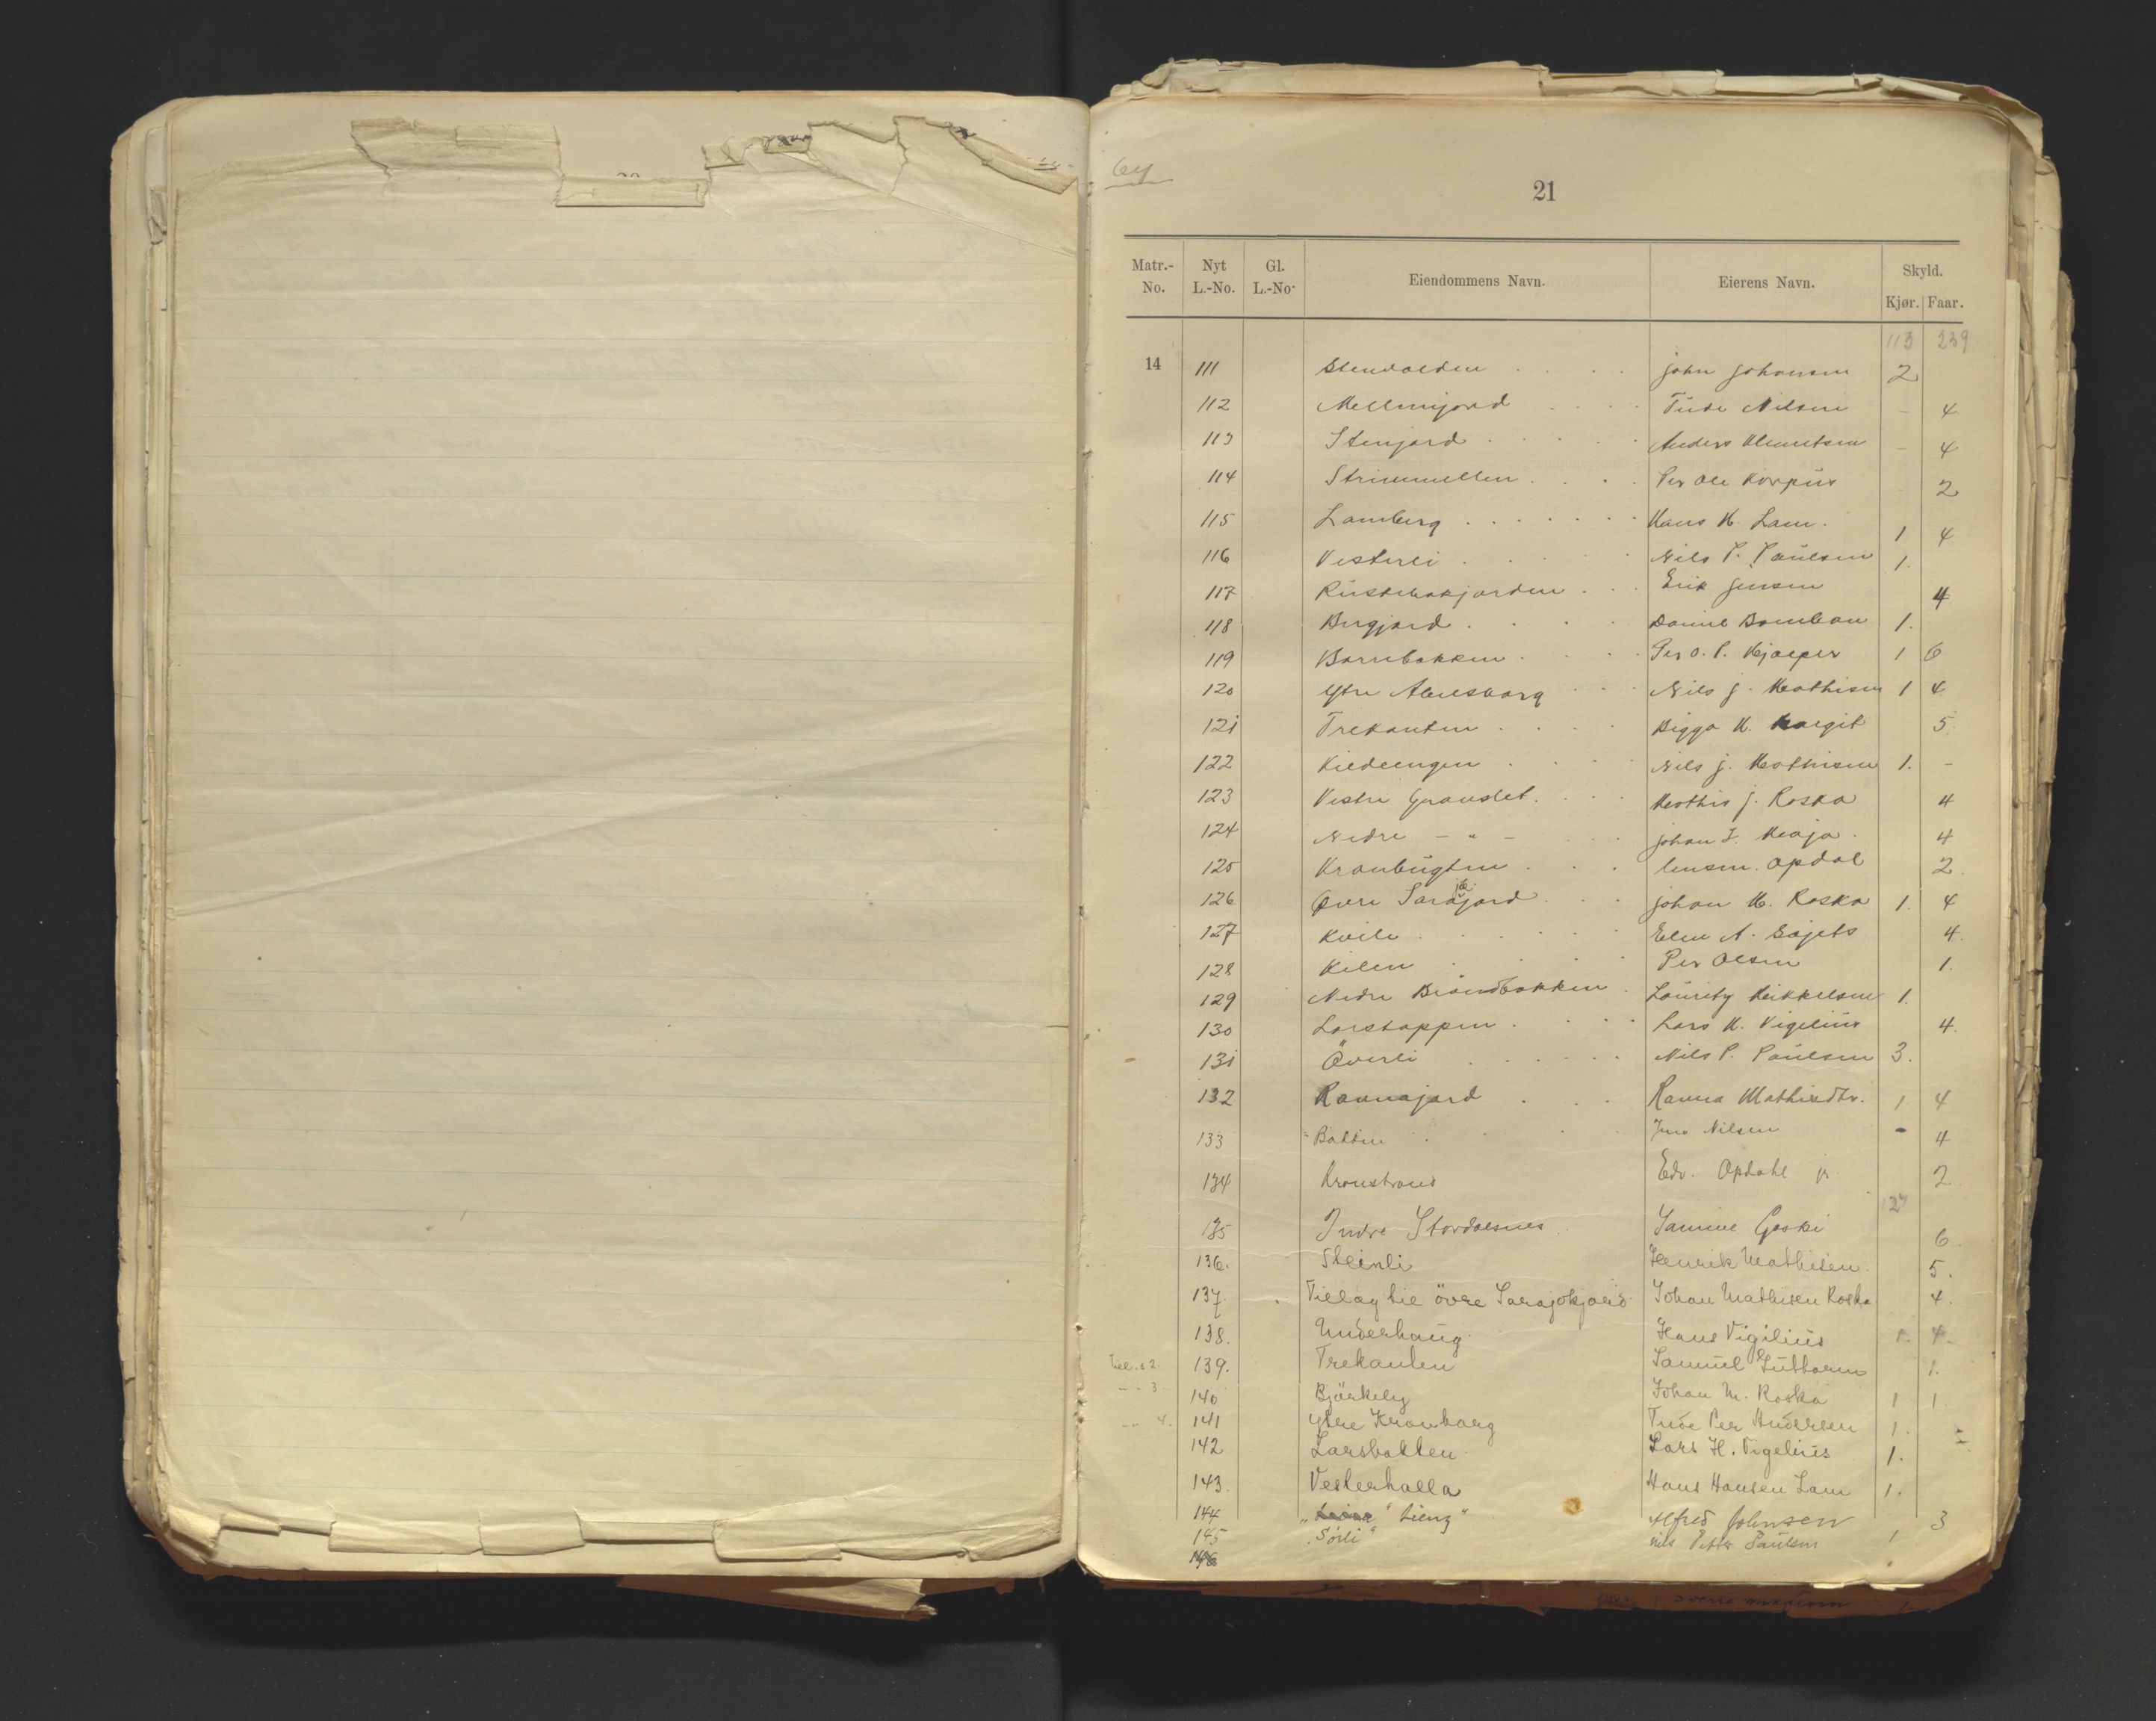 64
21
Matr.-No. Nyt L.-No. Gl. L.-No. Eiendommens Navn. Eierens Navn. Skyld. Kjør. Faar.
113 239
14 111 Stendalden John Johansen 2
112 Mellemjord Tude Nilsen - 4
113 Stenjord Anders Klemetsen - 4
114 Per Ole Korpus 2
115 Lamberg Hans H. Lam. 1 4
116 Vesterli Nils P. Paulsen 1.
117 Erik Jensen 4
118 Bergjord Daniel 1.
119 Barnebakken Per O. P. Kjæper 1 6
120 Ytre Nils J. Mathisen 1 4
121 Trekanten Bigga H. Margit 5.
122 Kildeengen Nils J. Mathisen 1. -
123 Vestre Granslet. Mathis J. Roska 4
124 Nedre - " - Johan J. Kaaja 4
125 Kranbugten lensm. Opdal 2
126 Øvre Sarajokjord Johan M. Roska 1. 4
127 Kvile Elen A. Gajets 4.
128 Kilen Per Olsen 1.
129 Nedre Brændbakken Lauritz Mikkelsen 1.
130 Larstappen Lars H. Vigelius 4.
131 Överli Nils P. Paulsen 3.
132 Raunajord Rauna Mathisdtr. 1 4
133 Batten Jens Nilsen - 4
134 Kranstrand Edv. Opdahl jr. 2
127
135 Indre Stordalsnes Samuel Gaski 6.
136. Steinli Henrik Mathisen. 5.
137. Tillæg til övre Sarajokjord Johan Mathisen Roska 4.
138. Underhaug Hans Vigilius 1. 4.
Till. s 2. 139. Trekanten Samuel Guttorm 1.
- - 3 140 Björkely Johan M. Roska 1 1
- - 4. 141 Ytre Kranberg Tude Per Andersen 1.
142 Larsbakken Lars H. Vigelius 1.
143. Vesterhalla Hans Hansen Lam 1.
144 "Lieng" Alfred Johnsen 3
145 "Sörli" Nils Petter Paulsen 1
146